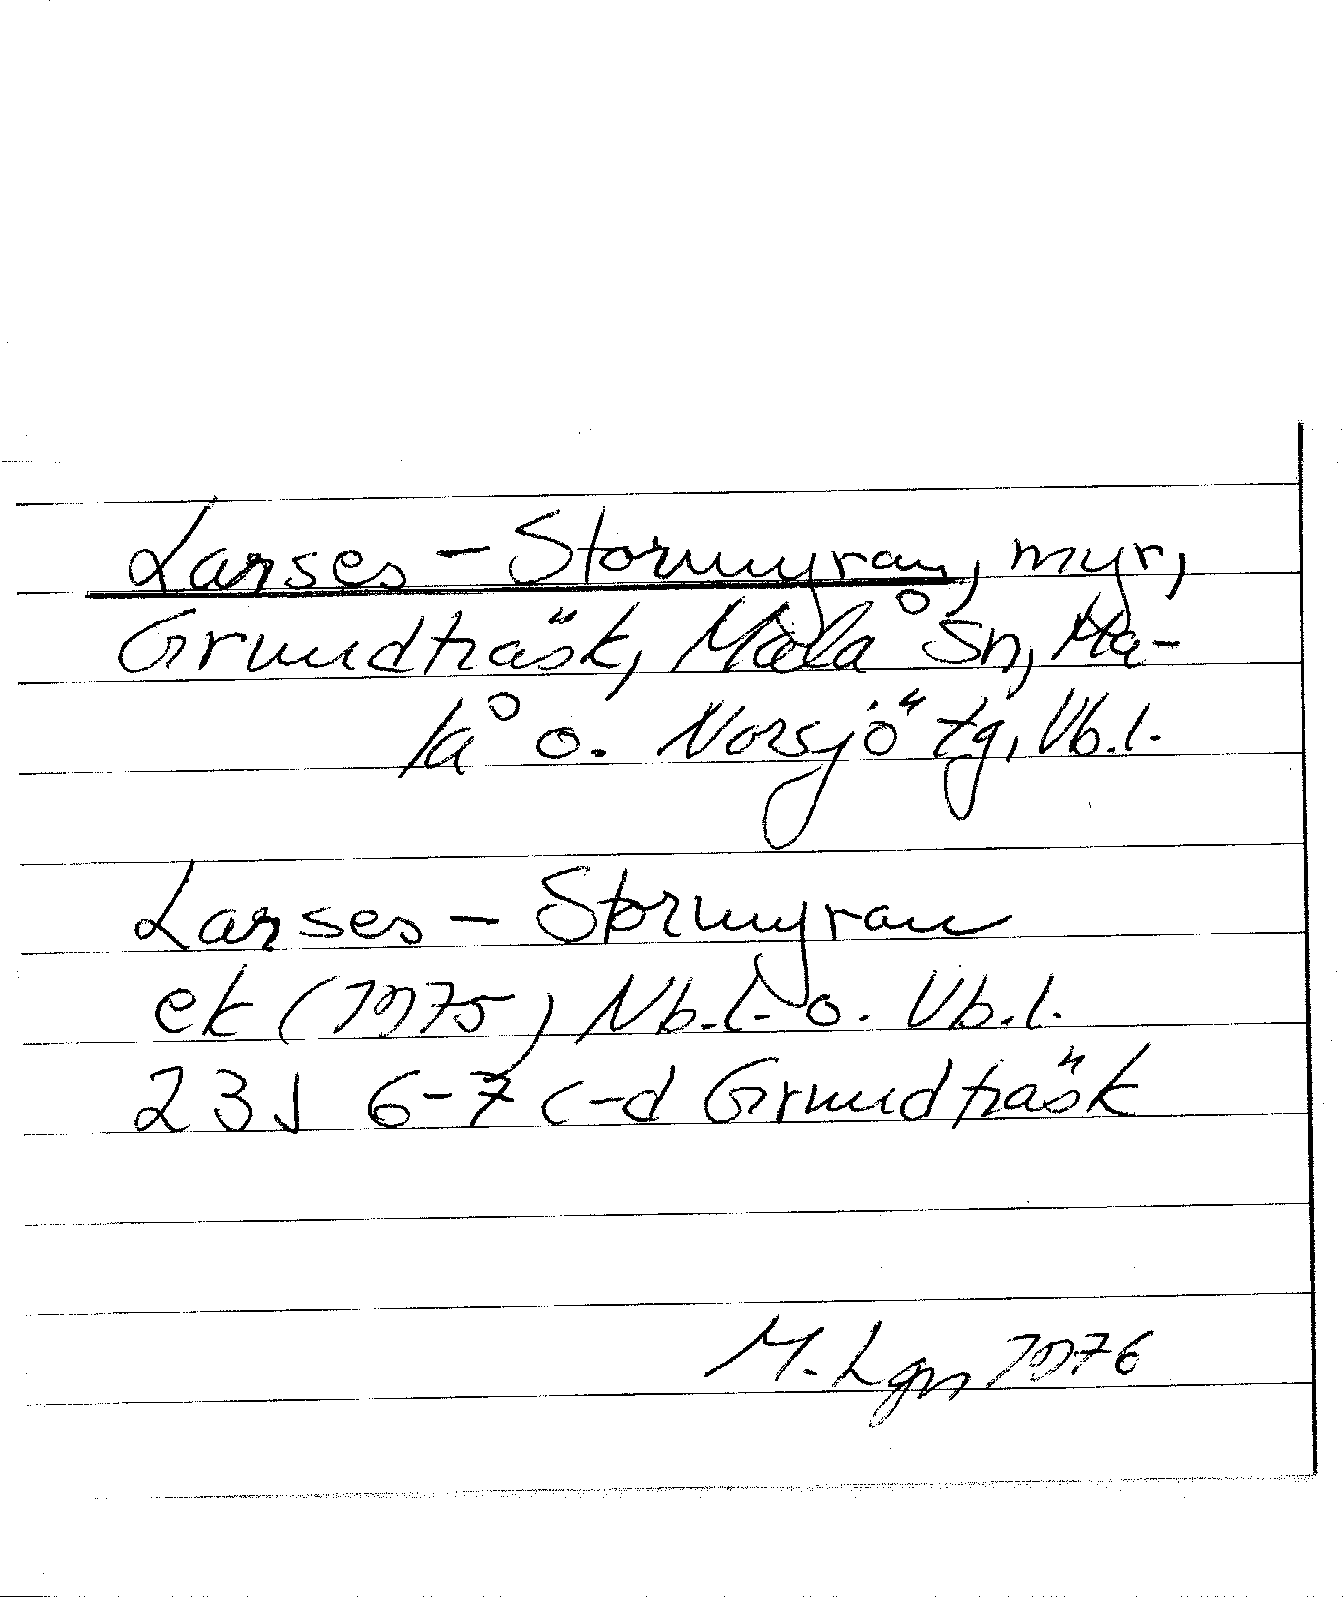 Larses-Stormyran, myr,
Grundträsk, Malå sn, Ma-
lå o. Norsjö tg, Vb.l.
Larses-Stormyran
ek (1975) Nb.l. o. Vb.l.
23J 6-7 c-d Grundträsk
M. Lgn 1976